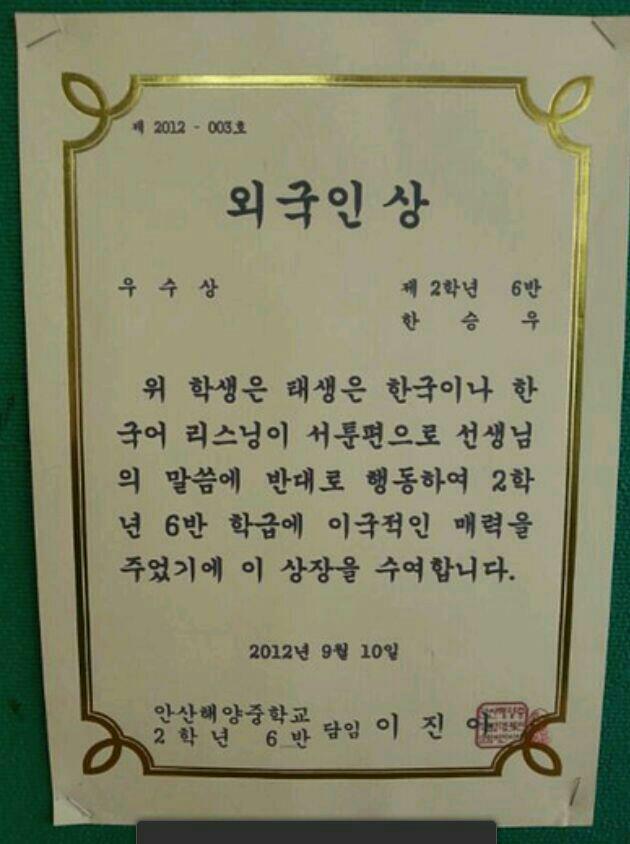 제 2012 - 003호
외국인상
우 수 상 제 2학년 6반
한 승 우
위 학생은 태생은 한국이나 한
국어 리스닝이 서툰편으로 선생님
의 말씀에 반대로 행동하여 2학
년 6반 학급에 이국적인 매력을
주었기에 이 상장을 수여합니다.
2012년 9월 10일
안산해양중학교
2 학 년 6 반 담임 이 진 아